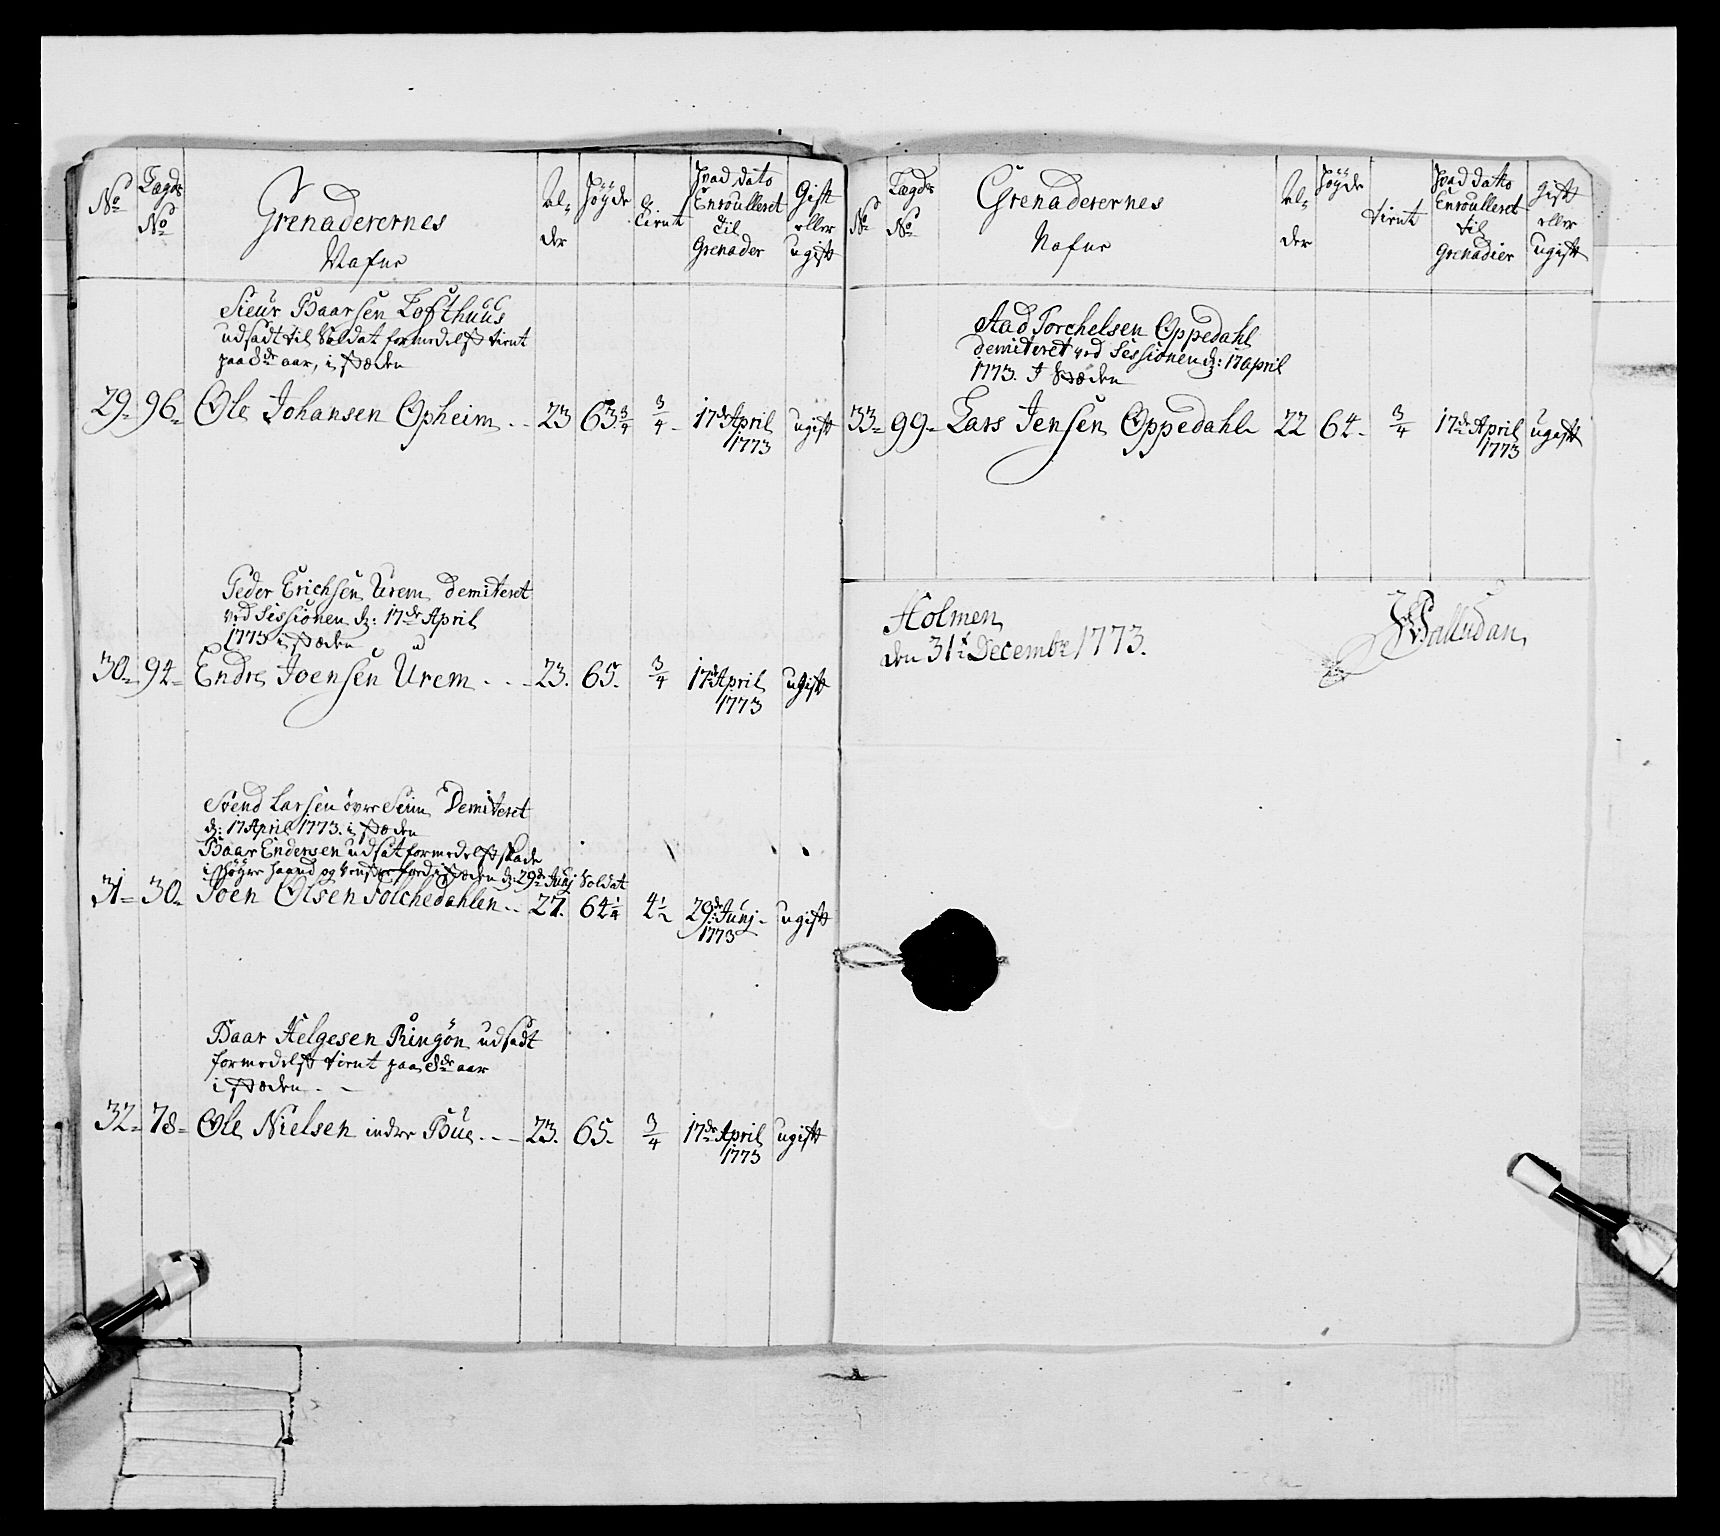 No
Lægds No
Grenaderernes
Nafne
Al-
der
Höyde
tient
Hvad dato
Enroulleret
til
Grenader
Gift
eller
ugift
Sieur Baarsen Lofthuus
udsadt til Soldat formedelst tient
paa 8de aar, i stæden
29. 96. Ole Johansen Opheim 23 63 3/4 3/4 17de April ugift
1773
Peder Erichsen Urem demiteret
ved Sessionen d: 17de April
1773 i stæden
30. 94. Endre Joensen Urem 23. 65. 3/4 17de April ugift
1773
Svend Larsen övre Seim Demiteret
d: 17 April 1773. i stæden
Baar Endersen udsat formedelst skade
i höyre haand og venstre fod i stæden d: 29de Junj Soldat
31. 30. Joen Olsen Folchedahlen 27. 64 1/4 4 1/2 29de Junj ugift
1773
Baar Helgesen Ringön udsadt
formedelst tient paa 8de aar
i stæden
32. 78. Ole Nielsen indre Bue 23. 65. 3/4 17de April ugift
1773
No
Lægds
No
Grenaderernes
Nafne
Al-
der
Höyde
tient
Hvad datto
Enroulleret
til
Grenadier
gift
eller
ugift
Aad Torchelsen Oppedahl
demiteret ved Sessionen d: 17 April
1773. I stæden
33. 99. Lars Jensen Oppedahl 22 64. 3/4 17de April ugift
1773
Holmen
den 31te Decembr 1773.
Walludan